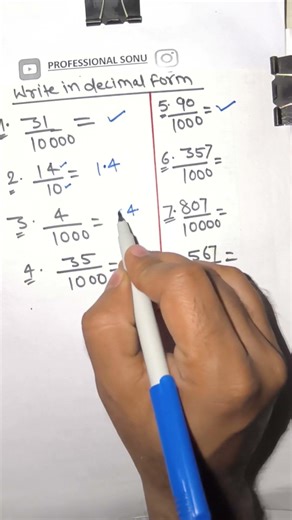 PROFESSIONAL SONU
Write in decimal form
1. 31/10000 =
2. 14/10 = 1.4
3. 4/1000 = 4
4. 35/1000 =
5. 90/1000 =
6. 357/1000 =
7. 807/10000 =
567 =